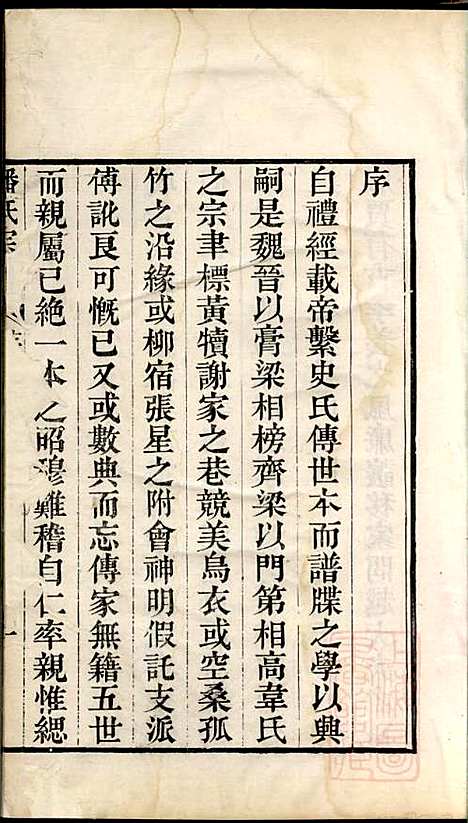 序
自禮經載帝繫史氏傳世本而譜牒之學以興
嗣是魏晉以膏梁相榜齊梁以門第相高韋氏
之宗聿標黃犢謝家之巷競美烏衣或空桑孤
竹之沿緣或柳宿張星之附會神明假託支派
傅訛良可慨已又或數典而忘傳家無籍五世
而親屬已絕一本之昭穆難稽自仁率親惟緦
潘氏宗
序
一